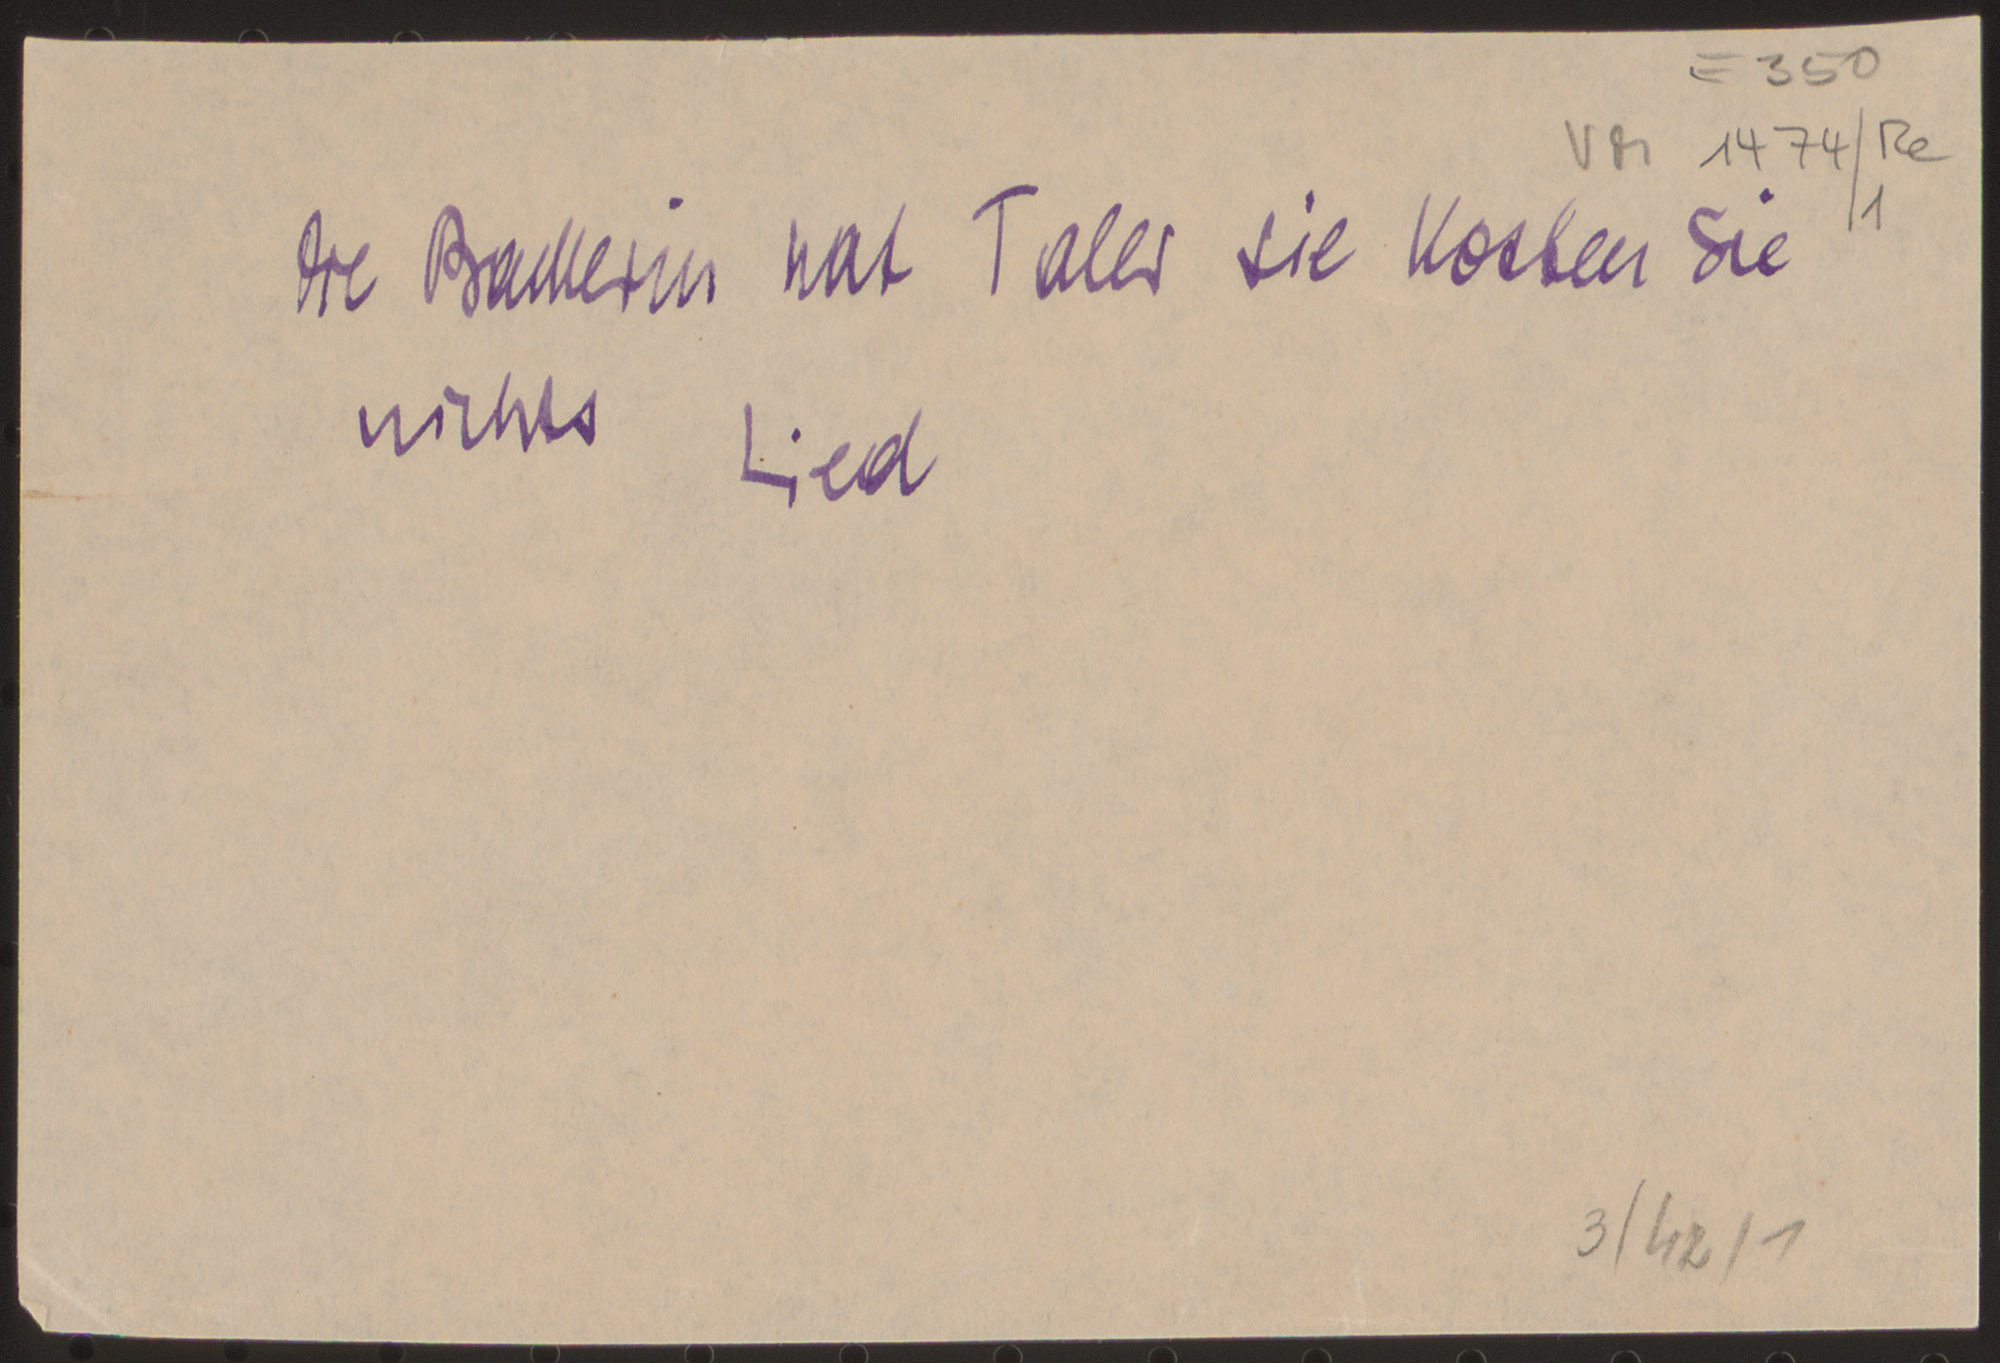 E 350
Vol 1474/Re
/1
Die Backerin hat Taler sie Kosten Sie
nichts Lied
3/42/1